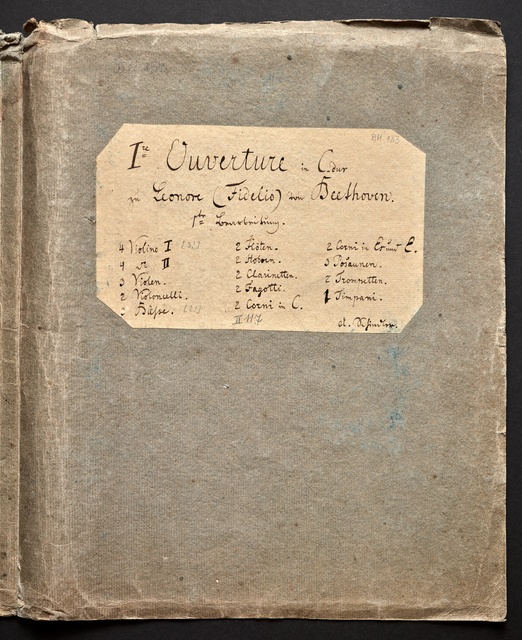 BH 183
Ire Ouverture in C dur
zu Leonore (Fidelio) von Beethoven.
1te Bearbeitung.
4 Violine I
4 dto II
3 Violen.
2 Violoncelli.
3 Bässe.
2 Flöten.
2 Hoboen.
2 Clarinetten.
2 Fagotti.
2 Corni in C.
II 117
2 Corni in Es und E.
3 Posaunen.
2 Trompetten.
1 Timpani.
A. Schindler.